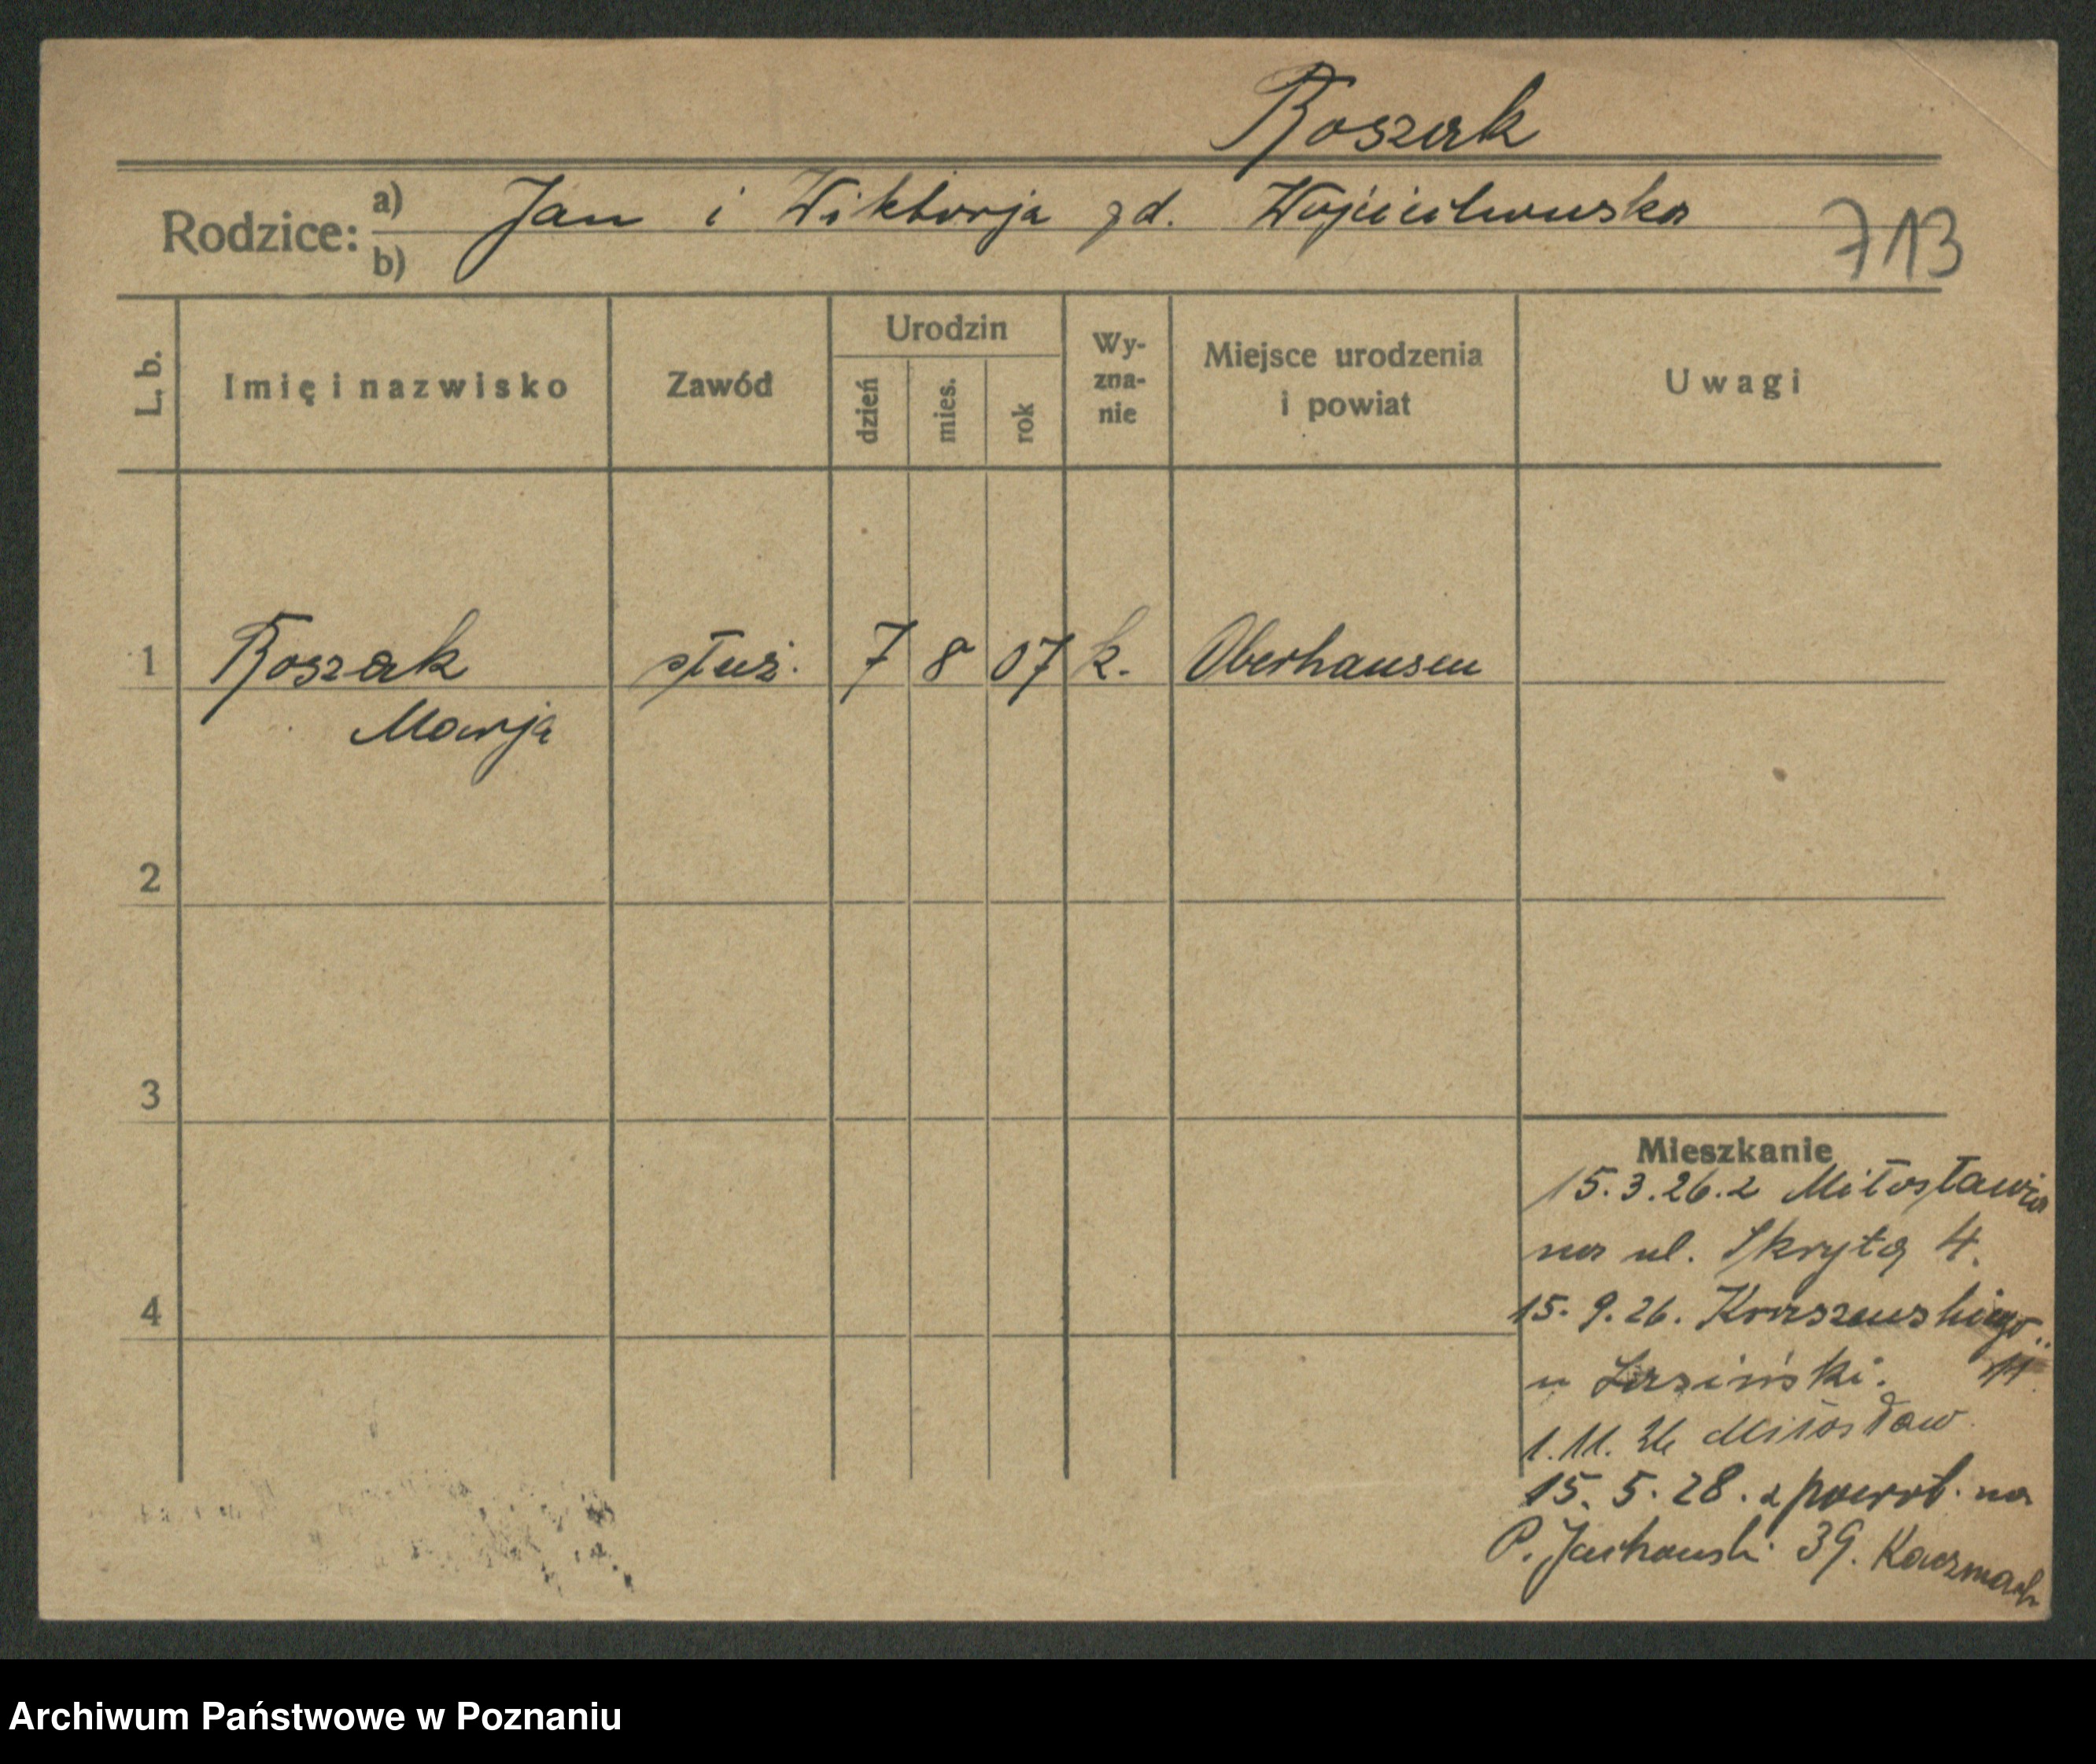 Roszak
Rodzice: a) Jan i Wiktorja zd.
b)
713
L. b.
Imię i nazwisko
Zawód
Urodzin
dzień
mies.
rok
Wy-
zna-
nie
Miejsce urodzenia
i powiat
Uwagi
1 Roszak służ. 7 8 07 k. Oberhausen
Marja
2
3
4
Mieszkanie
15.3.26. z Miłosławia
na ul. Skryta 4.
15. 9. 26. Kraszewskiego
11
u
1. 11. 26 Miłosław
15. 5. 28. z powrot. na
P. 39.
Archiwum Państwowe w Poznaniu